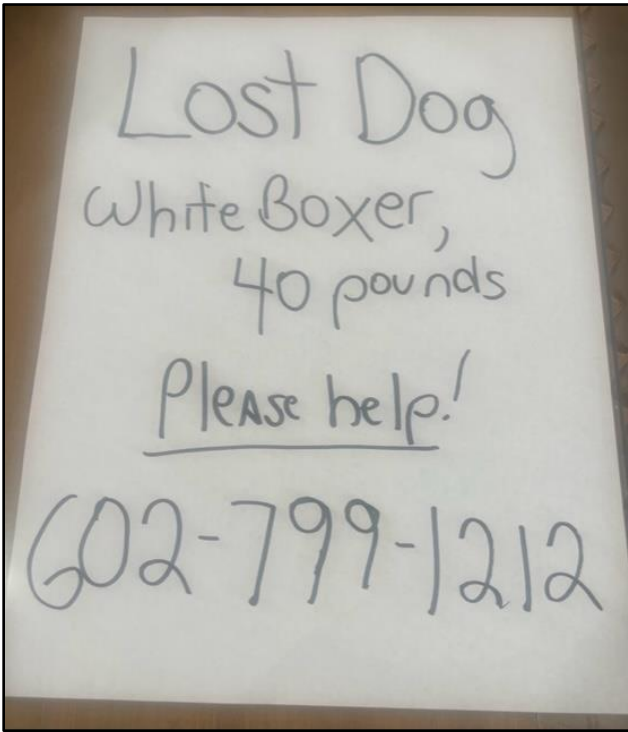 Lost Dog
White Boxer,
40 pounds
Please help!
602-799-1212